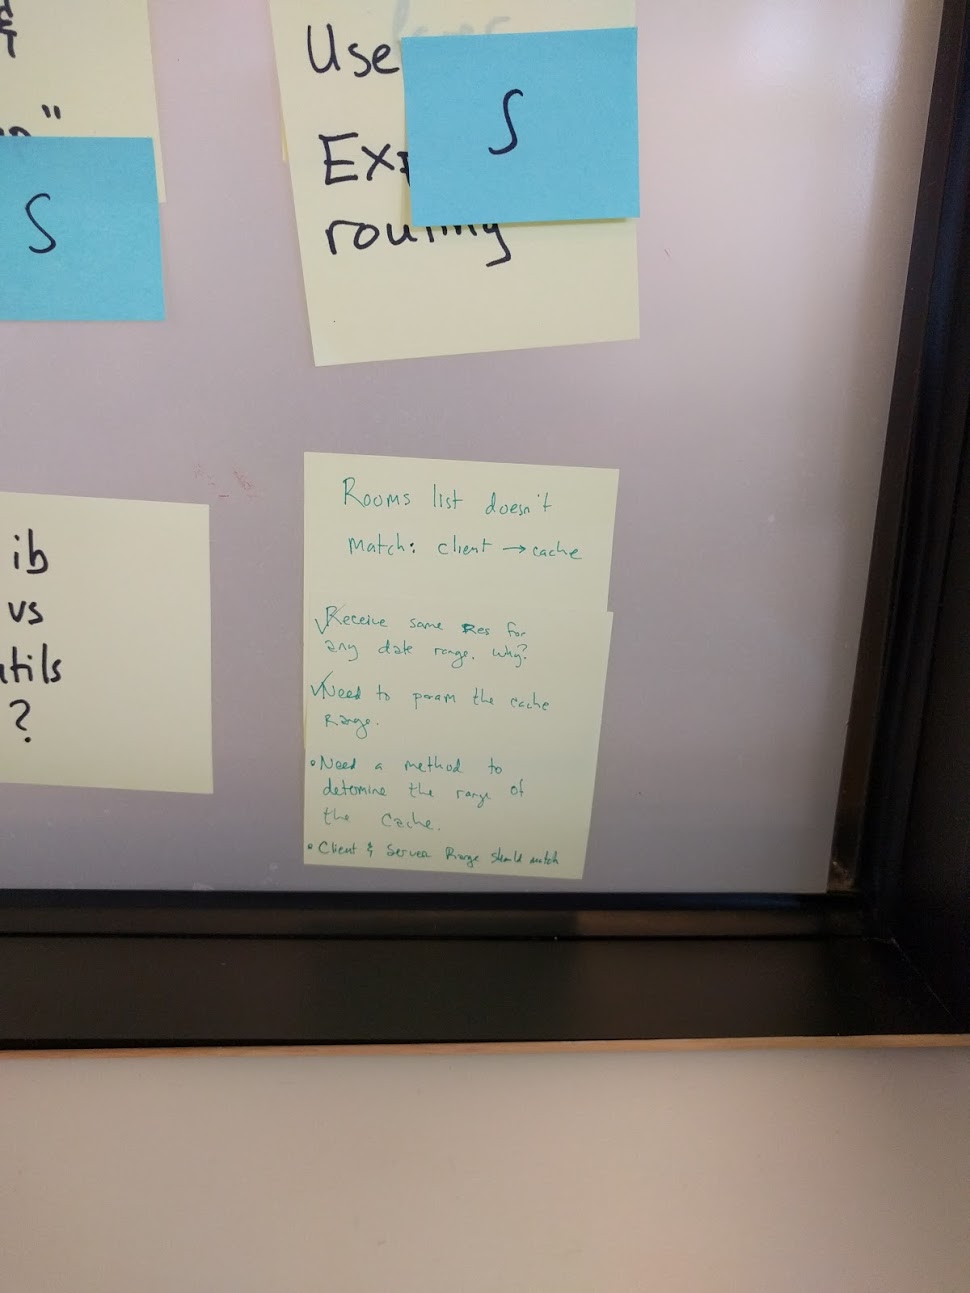 Use
S
routing
S
ib
vs
utils
?
Rooms list doesn't
Match: client → cache
✓Receive same Res for
any date range. Why?
✓Need to param the cache
Range.
• Need a method to
detomine the range of
the Cache.
• Client & Server Range should match